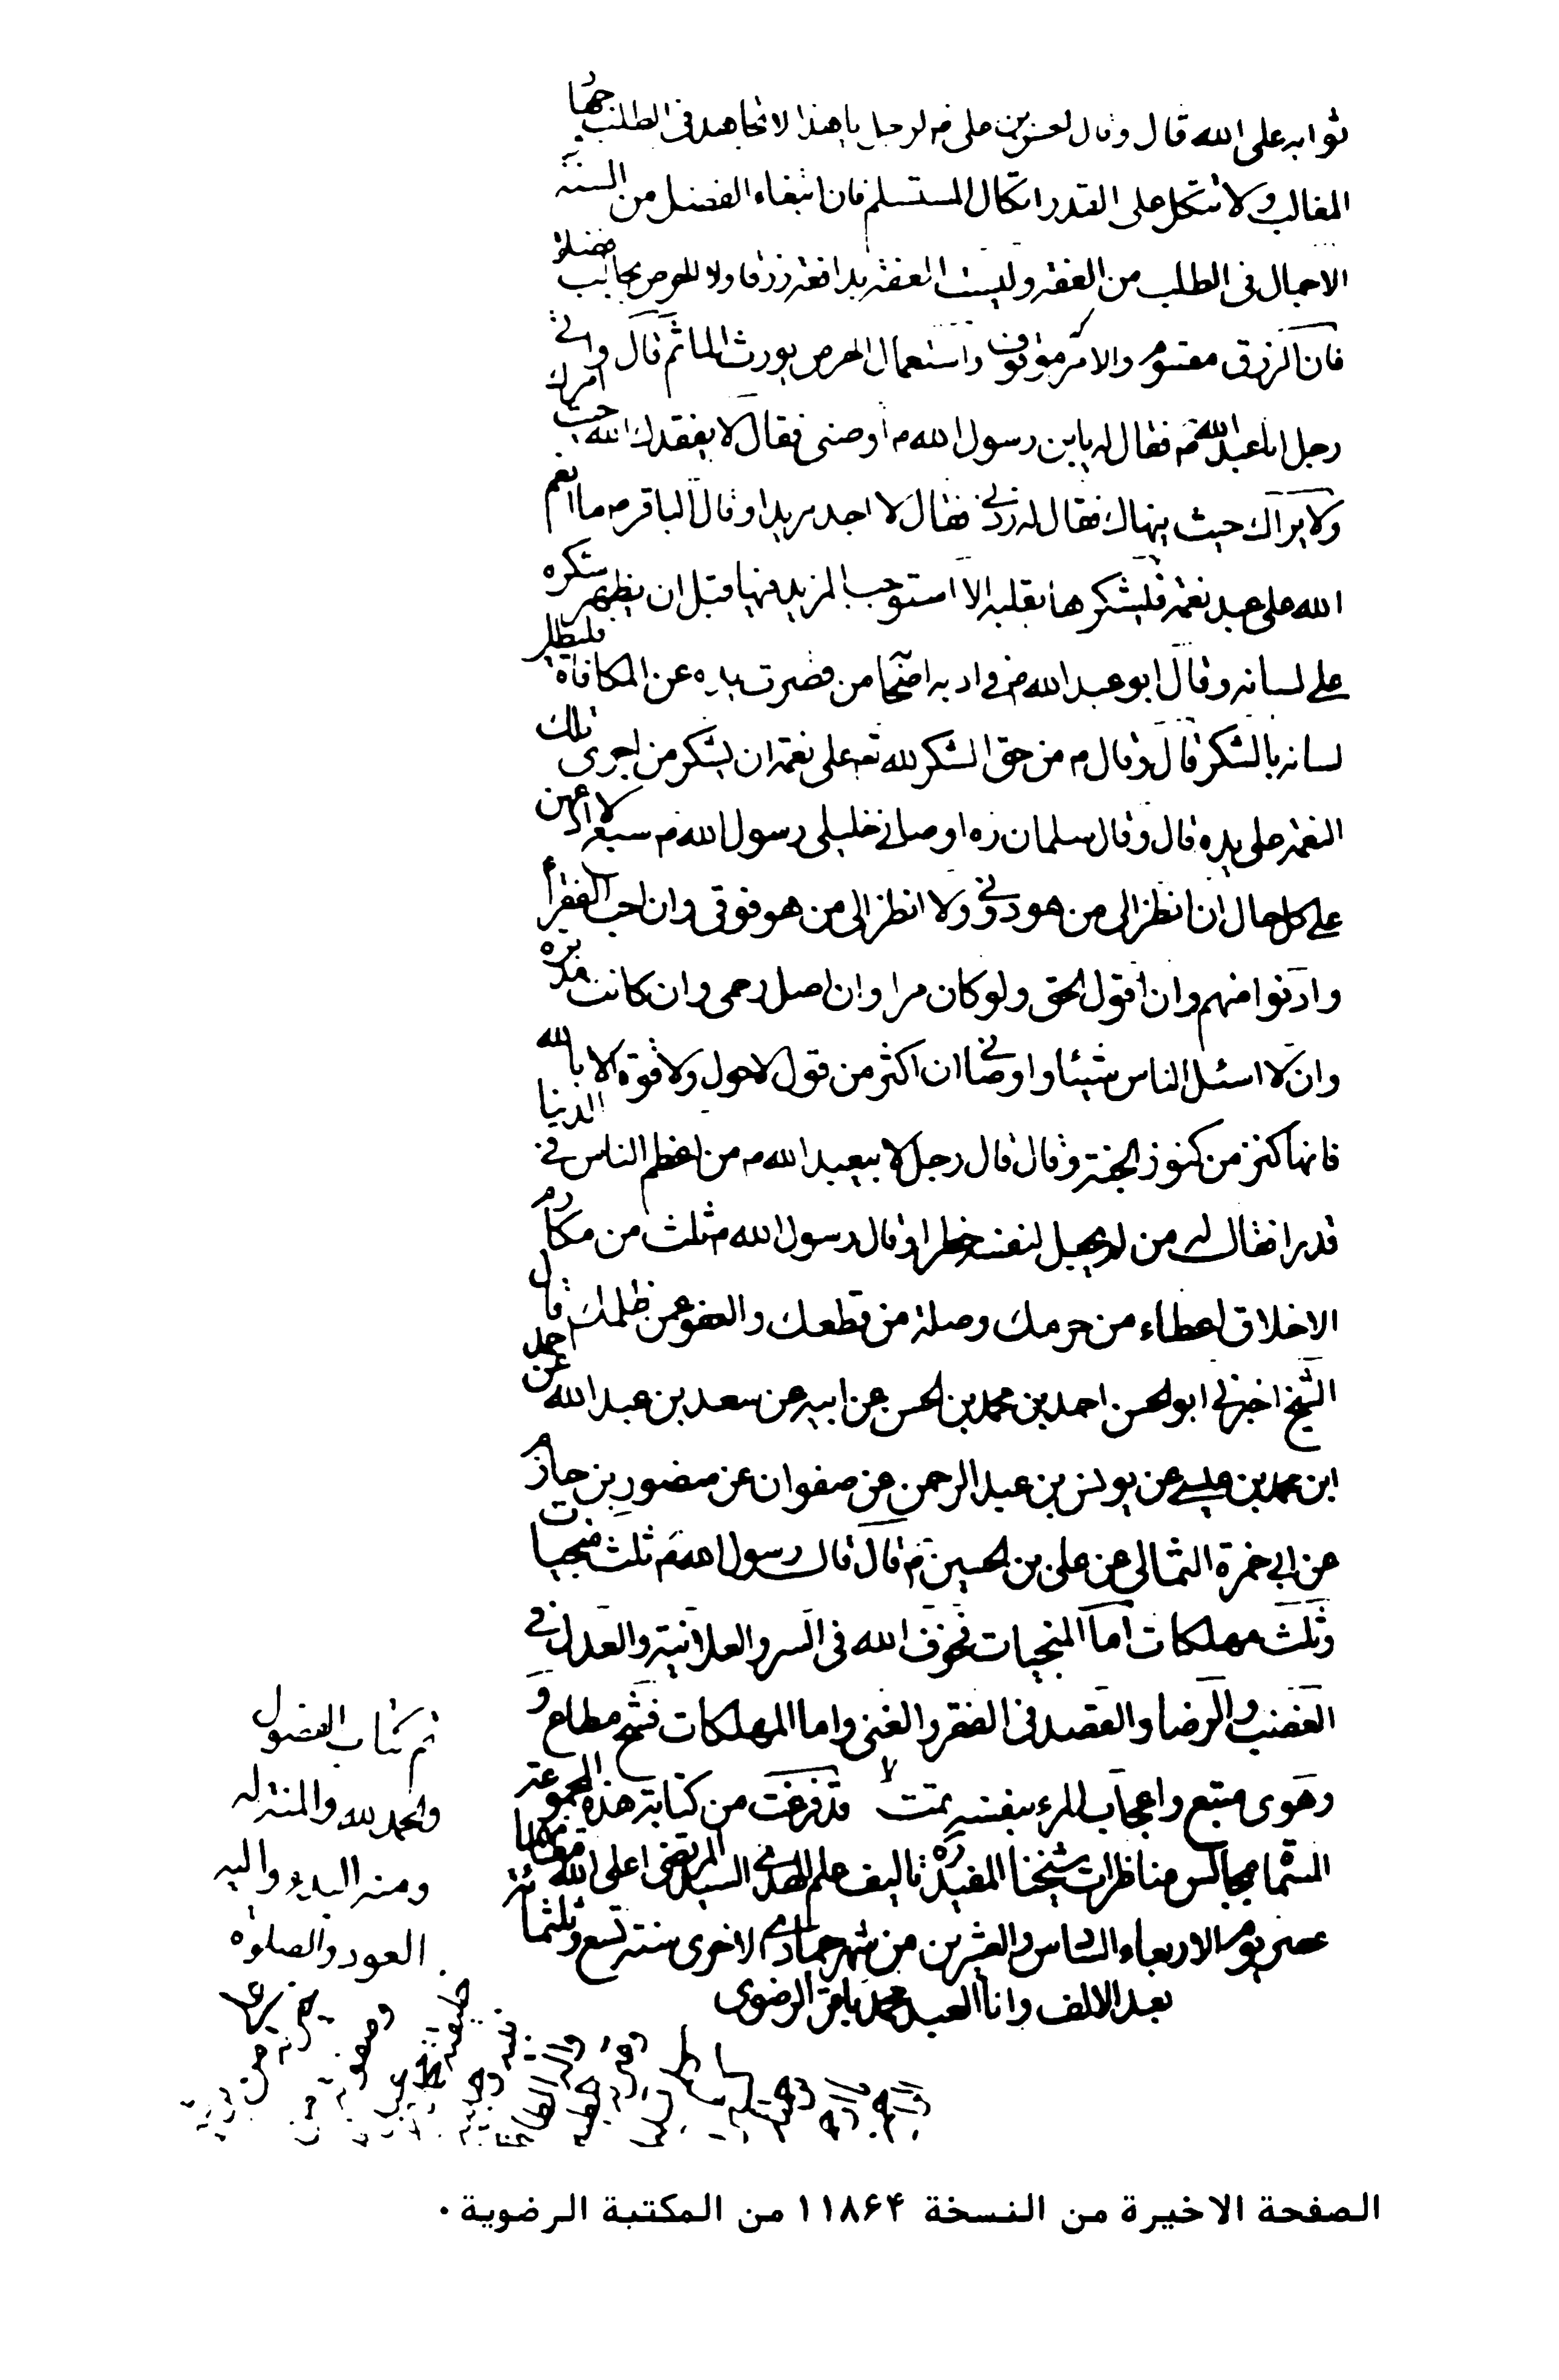 ثوابه على الله قال وقال الحسن بن على م لرجل يا هذا لا تجاهد فى الطلب جهاد
المغالب ولا تتكل على القدر اتكال المستسلم فان ابتغاء الفضل من السنة
الاجمال فى الطلب من العفة وليست العفة بدافعة رزقا ولا الحرص بجالب فضلا
فان الرزق مقسوم والامر موقوف واستعمال الحرص يورث الماثم قال واتى
رجل ابا عبد الله م فقال له يابن رسول الله م اوصنى فقال لا يفقدك الله حيث امرك
ولا يراك حيث ينهاك فقال له زدنى فقال لا اجد مزيدا وقال الباقر م ما انعم
الله على عبد نعمة فليشكرها بقلبه الا استوجب المزيد فيها قبل ان يظهر شكره
على لسانه وقال ابو عبد الله م فى ادبه اصحابه من قصرت يده عن المكافاة فليطل
لسانه بالشكر قال وقال م من حق الشكر لله تعـ على نعمته ان يشكر من اجرى تلك
النعمة على يده قال وقال سلمان ره اوصانى خليلى رسول الله م سبعة لا ادعهن
على كل حال ان انظر الى من هو دونى ولا انظر الى من هو فوقى وان احب الفقراء
وادنوا منهم وان اقول الحق ولو كان مرا وان اصل رحمى وان كانت مدبرة
وان لا اسئل الناس شيئا واوصانى ان اكثر من قول لاحول ولا قوة الا بالله
فانها كنز من كنوز الجنة وقال قال رجل لابيعبد الله م من اعظم الناس فى الدنيا
قدرا فقال له من لم يجعل لنفسه خطرا وقال رسول الله م ثلث من مكارم
الاخلاق اعطاء من حرمك وصلة من قطعك والعفو عمن ظلمك قال
الشيخ اخبرنى ابو الحسن احمد بن محمد بن الحسن عن ابيه عن سعد بن عبد الله عن احمد
ابن محمد بن عيسى عن يونس بن عبد الرحمن عن صفوان عن منصور بن حازم
عن ابى حمزة الثمالى عن على بن الحسين م قال قال رسول الله م ثلث منجيات
وثلث مهلكات اما المنجيات فخوف الله فى السر والعلانية والعدل فى
الغضب والرضا والقصد فى الفقر والغنى واما المهلكات فشح مطاع و
وهوى متبع واعجاب المرء بنفسه تمت قد فرغت من كتابة هذه المجموعة
المسماة مجالس مناظرات شيخنا المفيد ره تاليف علم الهدى السيد المرتضى اعلى الله مقامهما
عصر يوم الاربعاء السادس والعشرين من شهر جمادى الاخرى سنة تسع وثلثمائة
بعد الالف وانا العبد محمد باقر الرضوى
تم كتاب الفصول
والحمد لله والمنة له
ومنه البدء واليه
العود والصلوة
الصفحة الاخيرة من النسخة ۱۱۸۶۴ من المكتبة الرضوية .